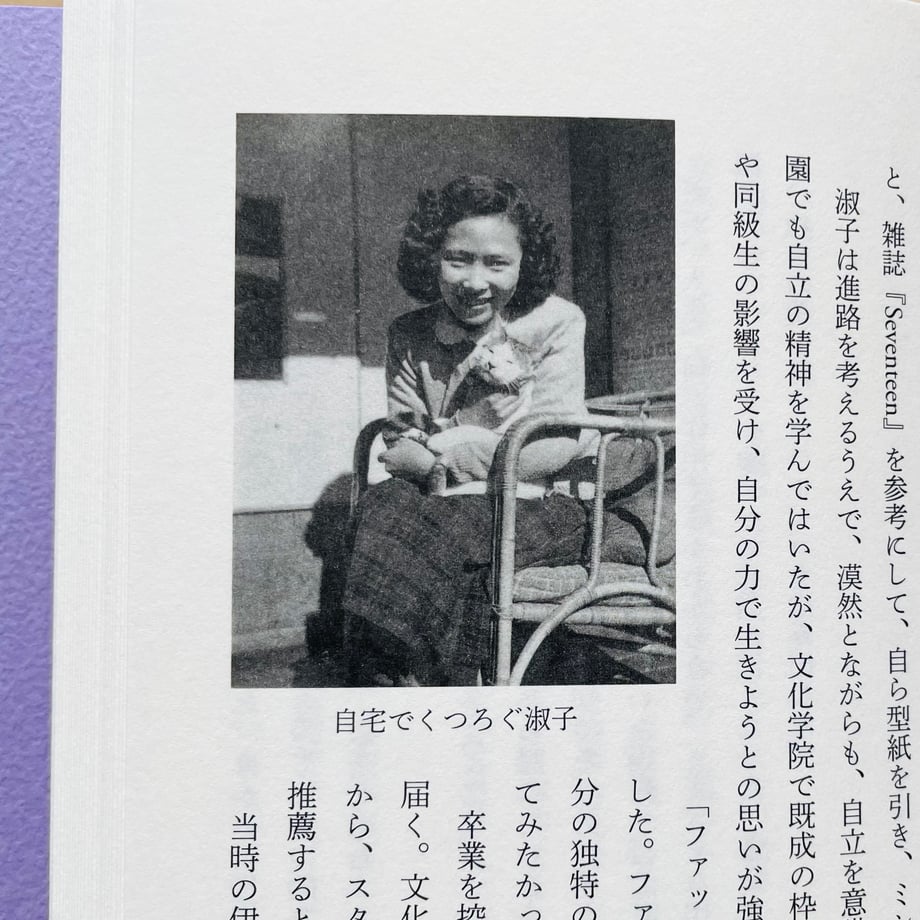 と、雑誌『Seventeen』を参考にして、自ら型紙を引き、ミ
淑子は進路を考えるうえで、漠然とながらも、自立を意
園でも自立の精神を学んではいたが、文化学院で既成の枠
や同級生の影響を受け、自分の力で生きようとの思いが強
「ファッ
した。ファ
分の独特の
てみたかっ
卒業を控
届く。文化
から、スタ
推薦すると
当時の伊
自宅でくつろぐ淑子